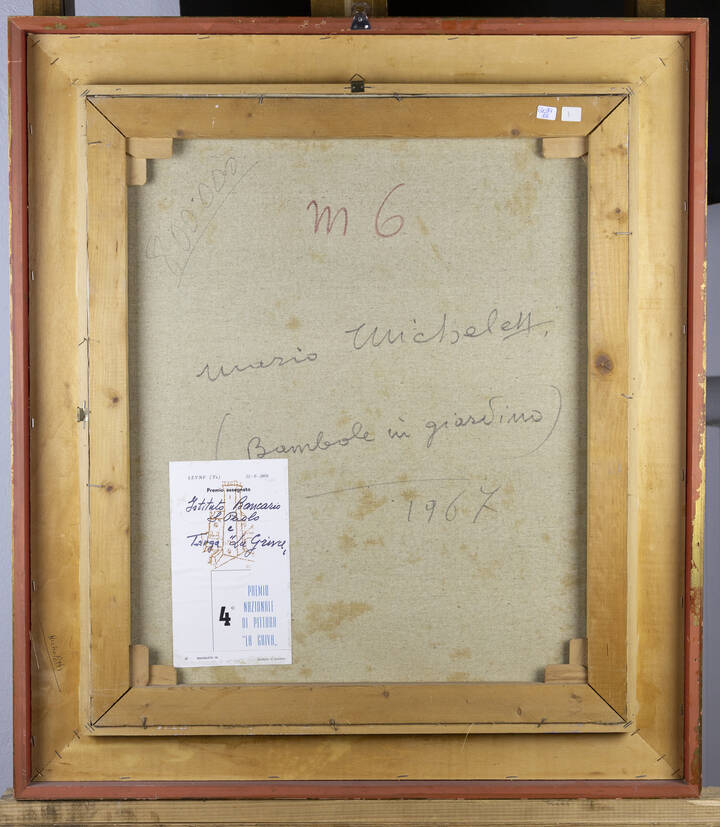 800.000
m 6
Mario Micheletti
(Bambole in giardino)
1967
Premio assegnato
Istituto Bancario
S. Paolo
e
Targa "La Griva"
4°
PREMIO
NAZIONALE
DI PITTURA
"LA GRIVA"